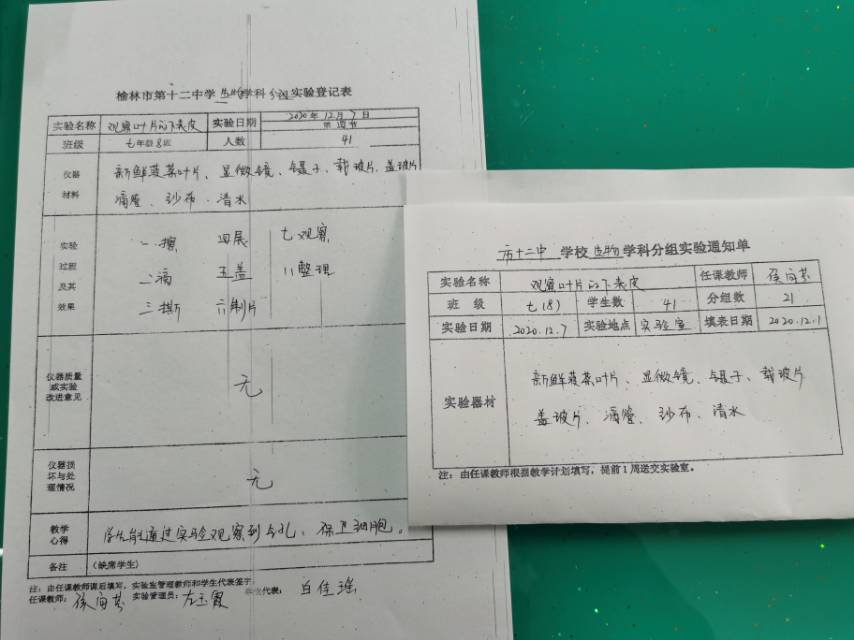 榆林市第十二中学 生物学科分组实验登记表
实验名称 观察叶片的下表皮 实验日期 2020年12月7日
班级 七年级8班 人数 41
仪器材料 新鲜菠菜叶片、显微镜、镊子、载玻片、盖玻片
滴管、纱布、清水
实验过程及其效果
一擦 四展 七观察
二滴 五盖 八整理
三撕 六制片
仪器质量或实验改进意见 无
仪器损坏与处理情况 无
教学心得 学生能通过实验观察到气孔、保卫细胞。
备注 (缺席学生)
注:由任课教师课后填写,实验室管理教师和学生代表签字
任课教师: 实验管理员:左玉霞 学生代表:白佳瑶
市十二中 学校 生物 学科分组实验通知单
实验名称 观察叶片的下表皮 任课教师
班级 七(8) 学生数 41 分组数 21
实验日期 2020.12.7 实验地点 实验室 填表日期 2020.12.1
实验器材 新鲜菠菜叶片、显微镜、镊子、载玻片
盖玻片、滴管、纱布、清水
注:由任课教师根据教学计划填写,提前1周送交实验室。